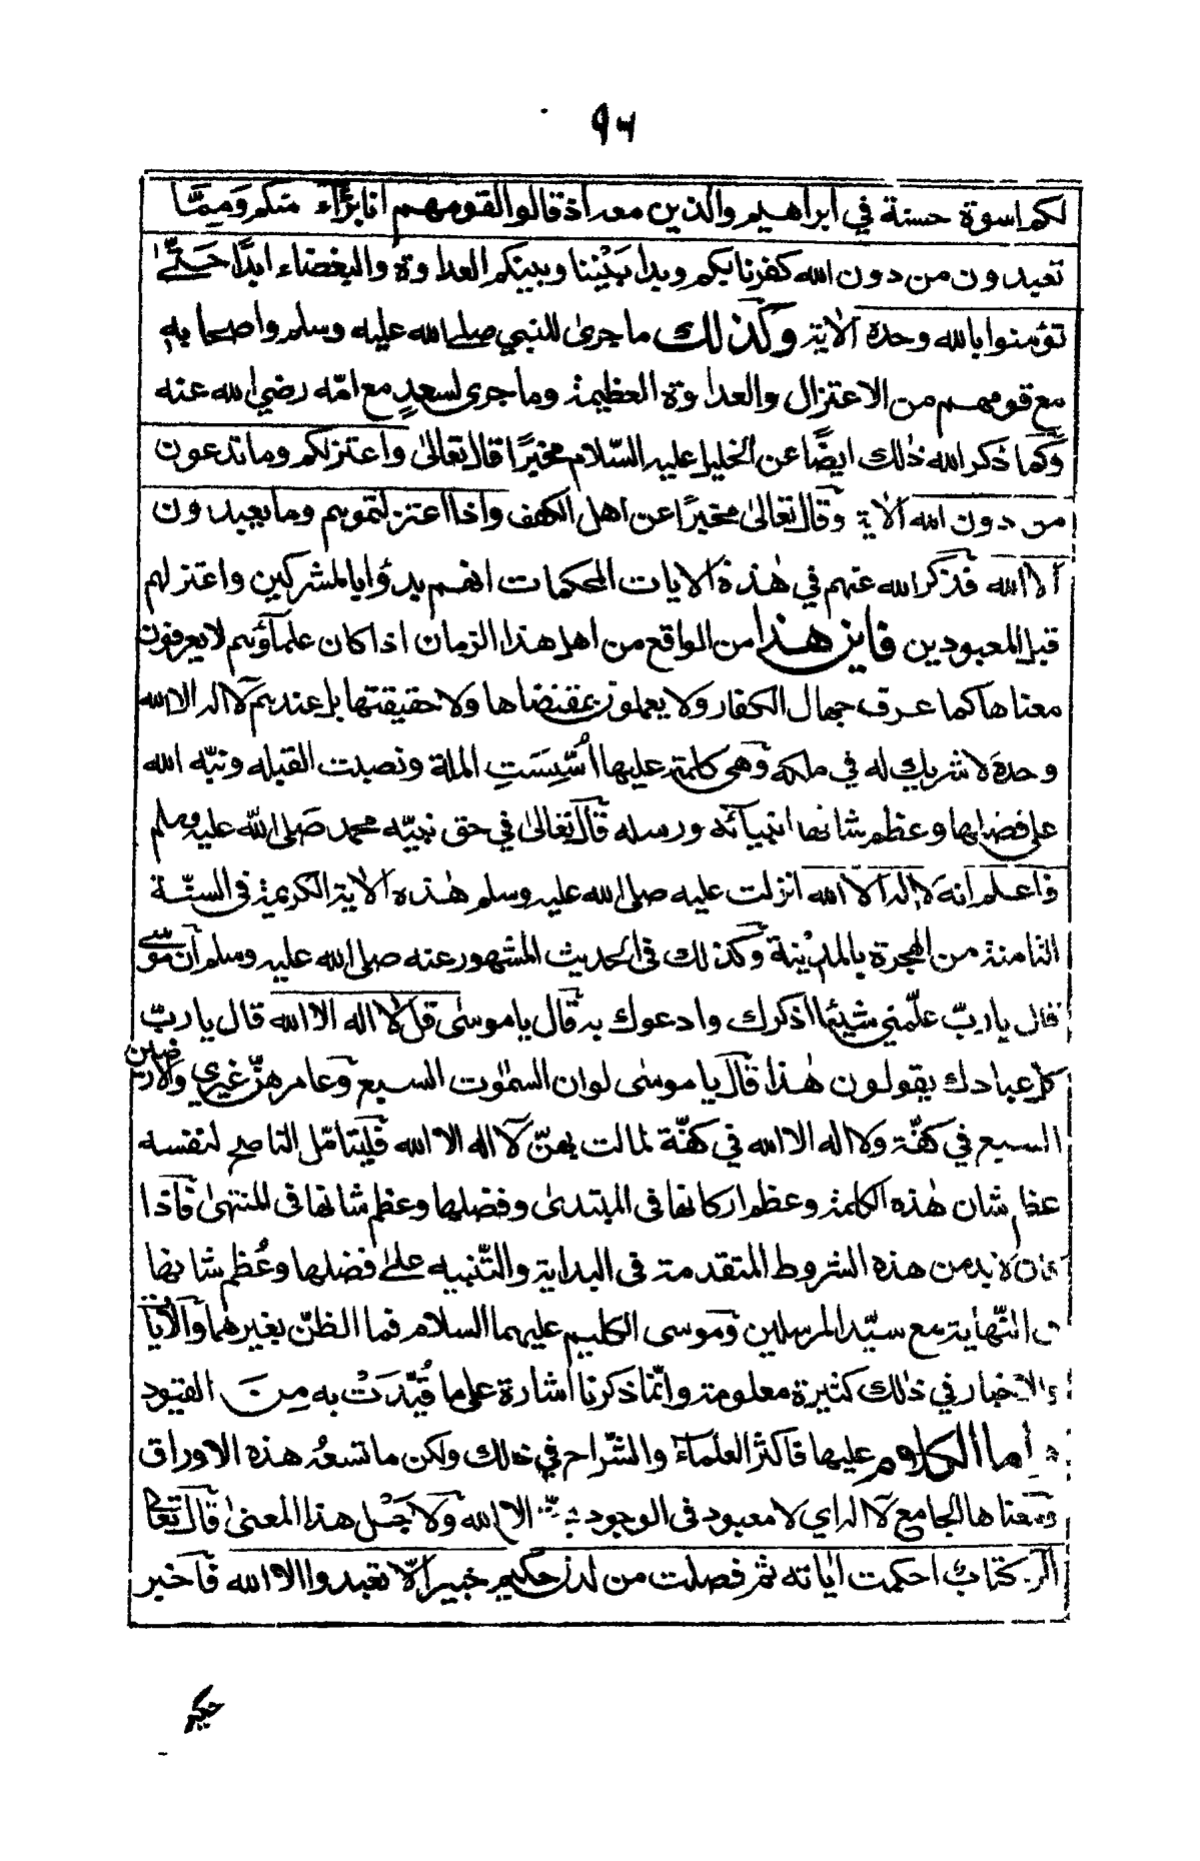 ٩٦
لكم اسوة حسنة في ابراهيم والذين معه اذ قالوا لقومهم انا برَّآء منكم وَمِمَّا
تعبدون من دون الله كفرنا بكم وبدا بَيْننا وبينكم العداوة والبغضاء ابدًا حَتّىٰ
تؤمنوا بالله وحدة الاٰية وكذلك ما جرىٰ للنبي صلے الله عليه وسلم واصحابه
مع قومهم من الاعتزال والعداوة العظيمة وما جرى لسعدٍ مع امّه رضي الله عنه
وكما ذكر الله ذٰلك ايضًا عن الخليل عليه السّلام مخبرًا قال تعالىٰ واعتزلكم وما تدعون
من دون الله الاٰية وقال تعالىٰ مخبرًا عن اهل الكهف واذا اعتزلتموهم وما يعبدون
الا الله فذكر الله عنهم في هٰذة الايات المحكمات انهم بدؤا بالمشركين واعتزلهم
قبل المعبودين فاين هذا من الواقع من اهل هذا الزمان اذا كان علماؤهم لا يعرفون
معناها كما عرف جهال الكفار ولا يعملون بمقتضاها ولا حقيقتها بل عندهم لا اله الا الله
وحدة لا شريك له في ملكه وهي كلمة عليها اُسِّسَتِ الملة ونصبت القبله ونبّه الله
على فضلها وعظم شانها انبيائه ورسله قال تعالىٰ في حق نبيّه محمد صَلى الله عليه وسلم
فاعلم انه لا اله الا الله انزلت عليه صلى الله عليه وسلم هٰذه الاٰية الكريمة في السنّة
الثامنة من الهجرة بالمديْنة وكذلك في الحديث المشهور عنه صلى الله عليه وسلم ان موسٰى
قال يا ربّ علّمني شيئًا اذكرك وادعوك به قال يا موسىٰ قل لا اله الا الله قال يا ربّ
كل عبادك يقولون هٰذا قال يا موسىٰ لو ان السمٰوٰت السبع وعامرهنّ غيري والارضين
السبع في كفّة ولا اله الا الله في كفّة لمالت بهنّ لا اله الا الله فليتامّل الناصح لنفسه
عظم شان هٰذه الكلمة وعظم اركانها في المبتدىٰ وفضلها وعظم شانها في المنتهىٰ فاذا
كان لا بد من هذه الشروط المتقدمة في البداية والتّنبيه علىٰ فضلها وعُظم شانها
في النّهاية مع سيّد المرسلين وموسى الكليم عليهما السلام فما الظنّ بغيرهما والاٰيات
والاخبار في ذٰلك كثيرة معلومة وانّما ذكرنا اشارة على ما قُيِّدَتْ به مِنَ القيود
اما الكلام عليها فاكثر العلماء والشّراح في ذلك ولكن ما تسعُه هذه الاوراق
ومعناها الجامع لا اله اي لا معبود في الوجود الا الله ولاجل هذا المعنىٰ قال تعالى
الر كتاب احكمت اٰياته ثم فصلت من لدن حكيم خبير الّا تعبدوا الا الله فاخبر